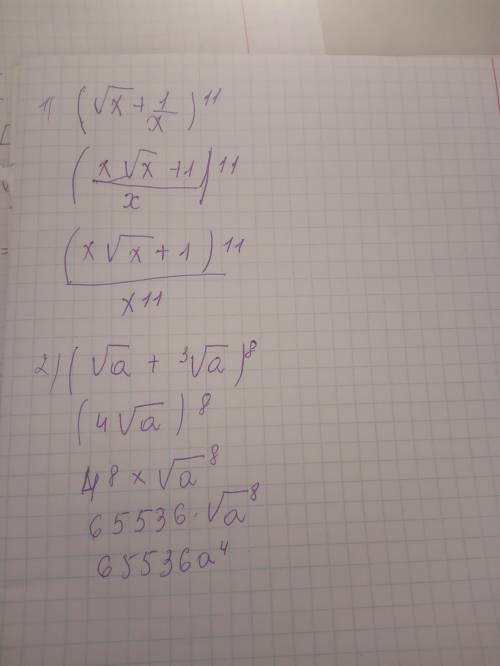 1) (√x + 1/x)¹¹
(x√x + 1 / x)¹¹
(x√x + 1)¹¹ / x¹¹
2) (√a + ³√a)⁸
(4√a)⁸
4⁸ × √a⁸
65536 · √a⁸
65536a⁴